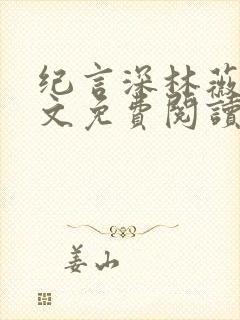 纪言深林薇
文免費閱讀
姜山